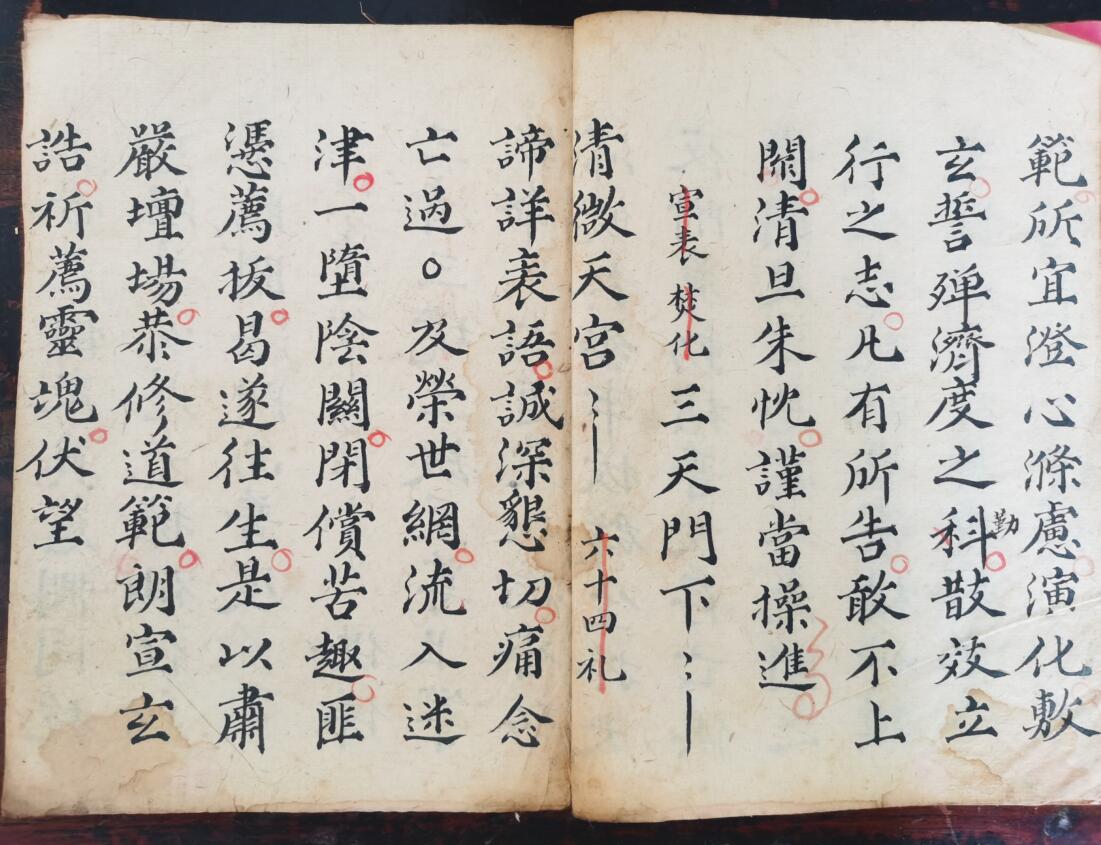 範所宜澄心滌慮演化敷
玄誓殫濟度之科勤散效立
行之志凡有所告敢不上
關清旦朱忱謹當操進
宣表焚化三天門下
清微天宮六十四礼
諦詳衷語誠深懇切痛念
亡過○及榮世網流入迷
津一墮陰關閉償苦趣匪
憑薦拔曷遂往生是以肅
嚴壇場恭修道範朗宣玄
誥祈薦靈魂伏望